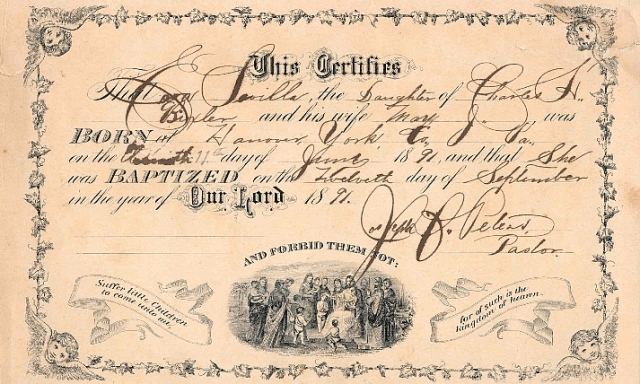 This Certifies
That Cora E. Savilla, the Daughter of Charles H.
Bixler and his wife Mary J., was
BORN at Hanover York Co. Pa.
on the 11th day of June 1891, and that She
was BAPTIZED on the twelveth day of September
in the year of Our Lord 1891.
Joseph D. Peters,
Pastor.
AND FORBID THEM NOT:
Suffer little Children
to come unto me,
for of such is the
kingdom of heaven.